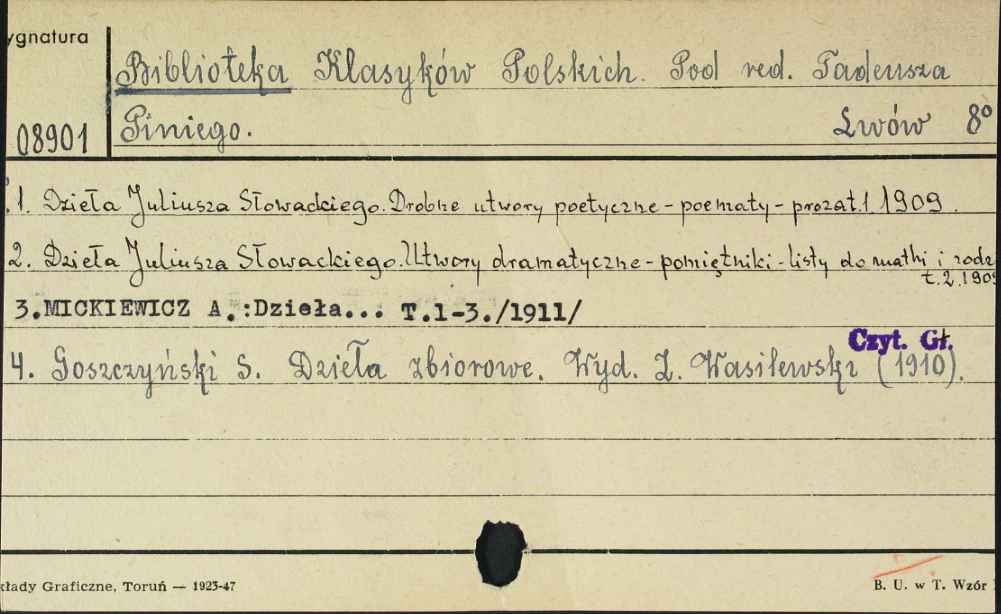 ygnatura
Biblioteka Klasyków Polskich. Pod red. Tadeusza
08901 Piniego. Lwów 8°
.1. Dzieła Juliusza Słowackiego. Drobne utwory poetyczne - poematy - proza t.1. 1909.
2. Dzieła Juliusza Słowackiego. Utwory dramatyczne - pomiętniki - listy do matki i rodz
t.2.1909
3.MICKIEWICZ A.:Dzieła... T.1-3./1911/
Czyt. Gł.
4. Goszczyński S. Dzieła zbiorowe. Wyd. Z. Wasilewski (1910).
kłady Graficzne, Toruń — 1923-47
B. U. w T. Wzór